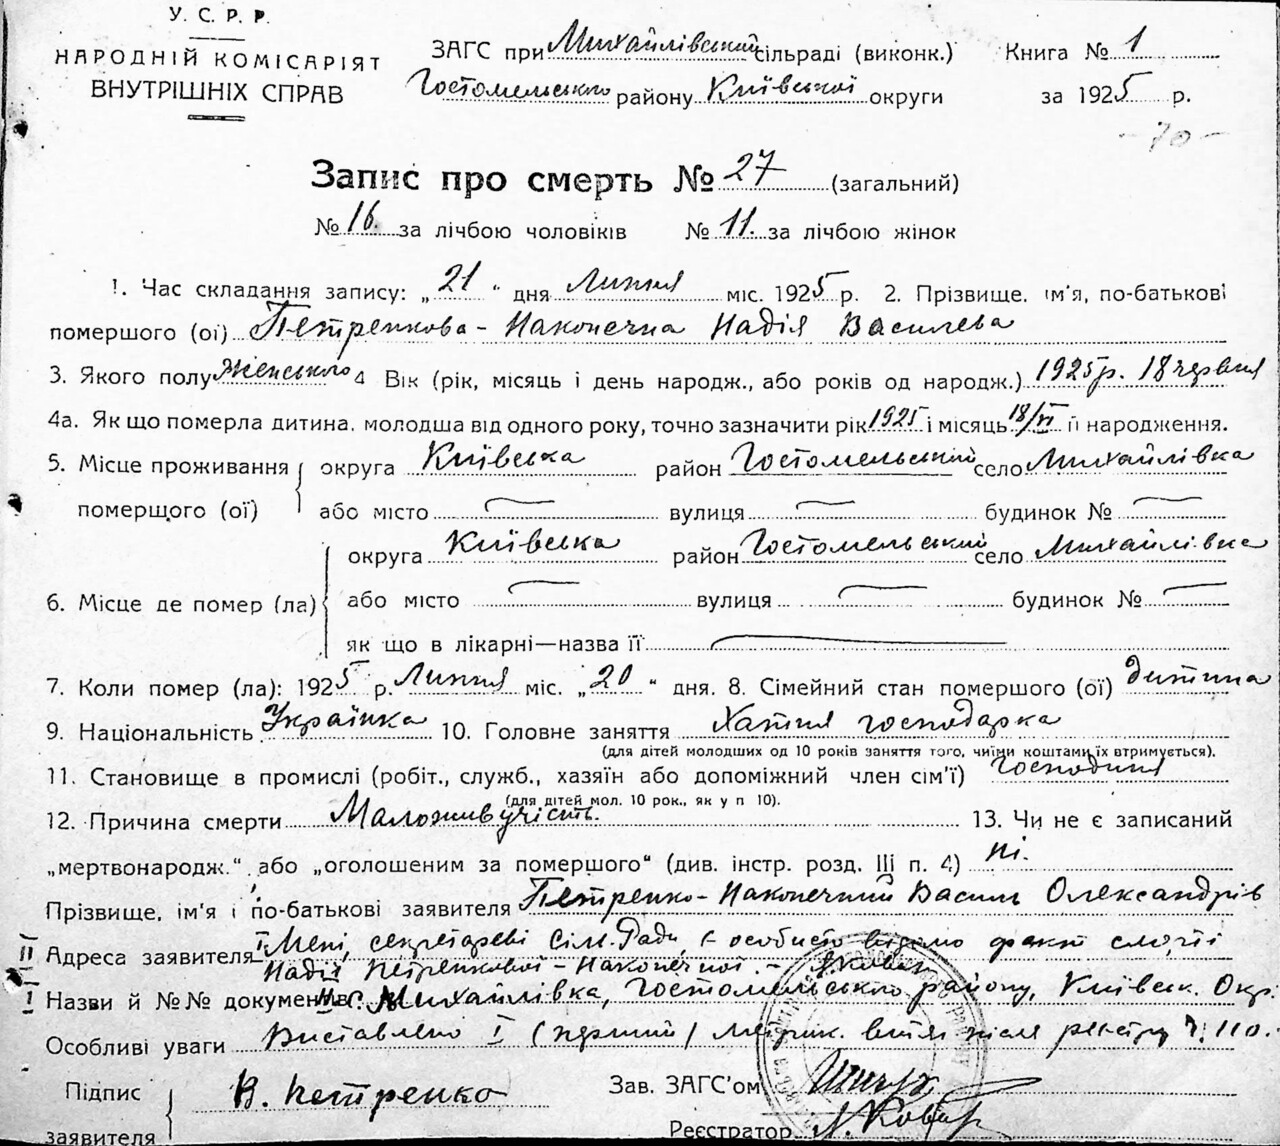 У. С. Р. Р.
НАРОДНІЙ КОМІСАРІЯТ
ВНУТРІШНІХ СПРАВ
ЗАГС при Михайлівській сільраді (виконк.)
Гостомельського району Київської округи
Книга № 1
за 1925 р.
- 70 -
Запис про смерть № 27 (загальний)
№ 16. за лічбою чоловіків № 11. за лічбою жінок
1. Час складання запису: „21“ дня Липня міс. 1925 р. 2. Прізвище, ім'я, по-батькові
помершого (ої) Петренкова-Наконечна Надія Василева
3. Якого полу Женського 4 Вік (рік, місяць і день народж., або років од народж.) 1925 р. 18 червня
4а. Як що померла дитина, молодша від одного року, точно зазначити рік 1925 і місяць 18/VI її народження.
5. Місце проживання померщого (ої) округа Київська район Гостомельський село Михайлівка
або місто вулиця будинок №
6. Місце де помер (ла) округа Київська район Гостомельський село Михайлівка
або місто вулиця будинок №
як що в лікарні—назва її
7. Коли помер (ла): 1925 р. Липня міс. „20“ дня. 8. Сімейний стан помершого (ої) дитина
9. Національність Українка 10. Головне заняття Хатня господарка
(для дітей молодших од 10 років заняття того, чиїми коштами їх втримується).
11. Становище в промислі (робіт., служб., хазяїн або допоміжний член сім'ї) господиня
(для дітей мол. 10 рок., як у п 10).
12. Причина смерти Маложивучість. 13. Чи не є записаний
„мертвонародж.“ або „оголошеним за помершого“ (див. інстр. розд. III п. 4) ні.
Прізвище, ім'я і по-батькові заявителя Петренко-Наконечний Василь Олександрів
II Адреса заявителя I Мені, секретареві Сіл. Ради є особисто відомо факт смерті
Надії Петренкової-Наконечної.-
I Назви й №№ документів II с. Михайлівка, Гостомельського району, Київськ. Окр.
Особливі уваги Виставлено I (перший) після реєстру ч. 110.
Підпис заявителя В. Петренко
Зав. ЗАГС'ом
Реєстратор